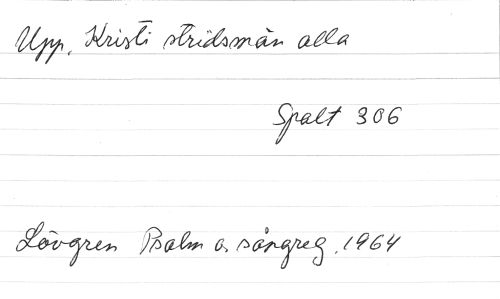 Upp, Kristi stridsmän alla
Spalt 306
Lövgren Psalm o. sångreg. 1964